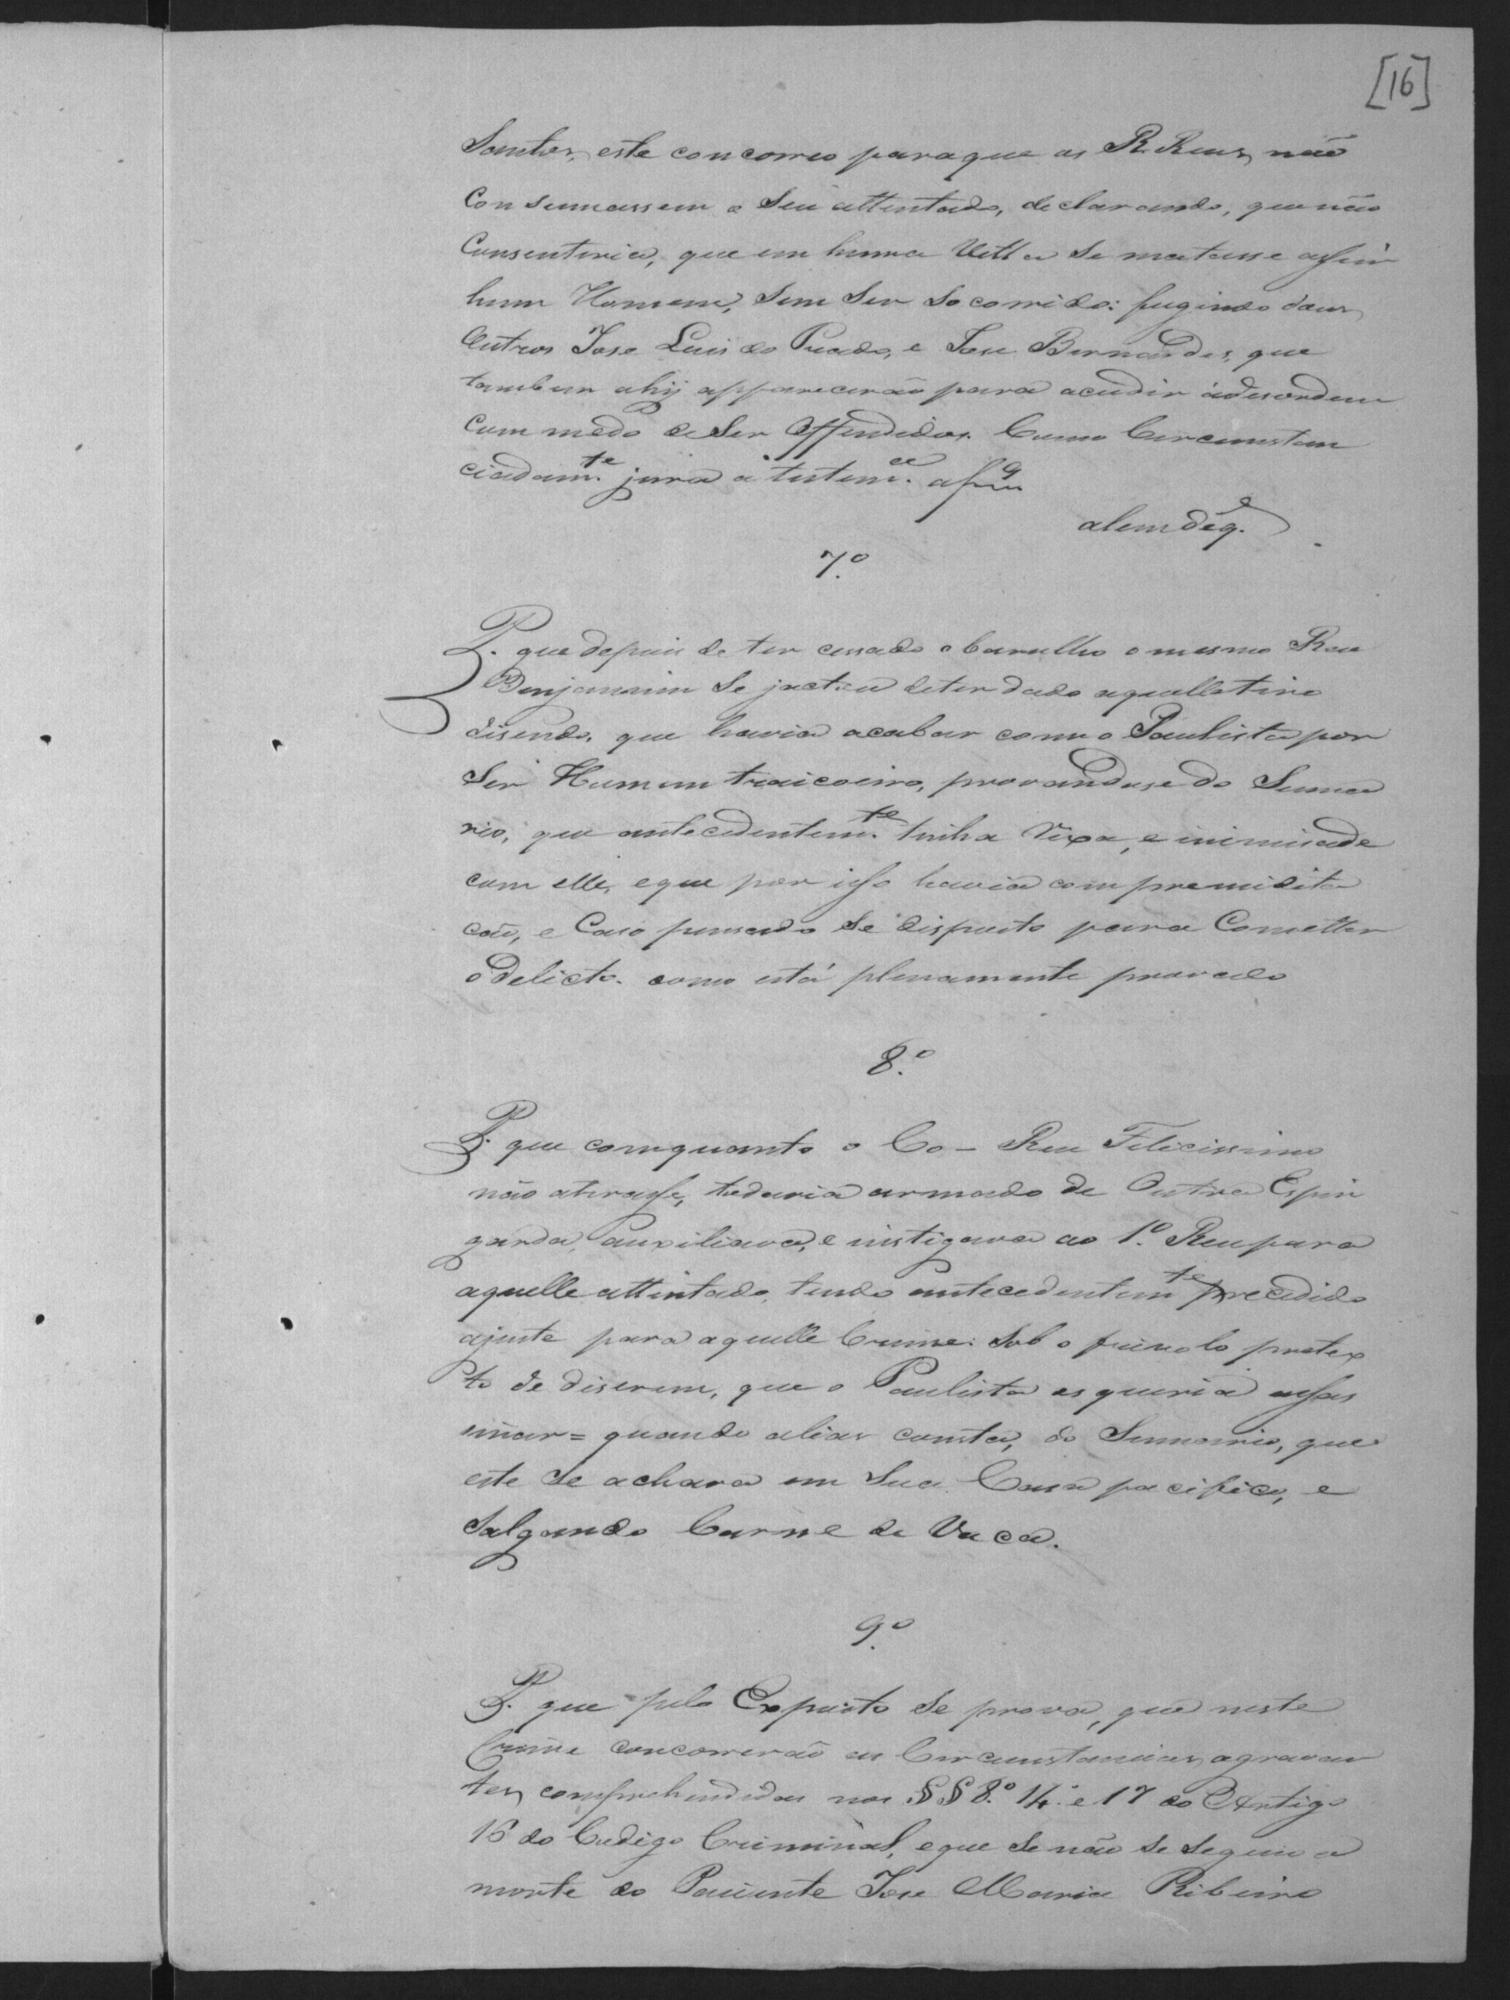 [16]
Santos, este concorreo paraque os R. Reus, não
Consumassem o Seu attentado, declarando, que não
Consentiria, que em huma Villa Se matasse assim
hum Homem, Sem Ser Socorrido: fugindo dous
Outros Jose Luis do Prado, e Jose Bernardes, que
tambem ahij apparecerão para acudir ádesordem
Com medo de Ser Offendidos. Como Circumstan
ciadam.te jura a testem.
alem deq.e
7.º
P. que depois de ter cessado o barulho o mesmo Reo
Benjamim Se jactou deter dado aquelle tiro
disendo, que havia acabar com o Paulista por
Ser Homem traicoeiro, provandose do Suma
rio, que antecedentem.te tinha rixa, e inimisade
com elle, eque por isso havia com premidita
cão, e Caso pensado Se disposto para Cometter
oDelicto. como está plenamente provado
8.º
P. que comquanto o Co-Reu Felicissimo
não atirasse, todavia armado de Outra Espin
garda, auxiliava, e instigava ao 1.º Reu para
aquelle attentado, tendo antecedentem.te precedido
ajuste para aquelle Crime: Sob o frivolo pretex
to de diserem, que o Paulista os queria assas
sinar = quando alias consta, do Sumario, que
este Se achava em Sua Casa pacifico, e
Salgando Carne de Vaca.
9.º
P. que pelo Exposto Se prova, que neste
Crime concorrerão as Circunstancias, agravan
tes, comprehendidas nos §§ 8.º 14. e 17 do Artigo
16 do Codigo Criminal, eque Se não Se Seguio a
morte do Paciente Jose Maria Ribeiro